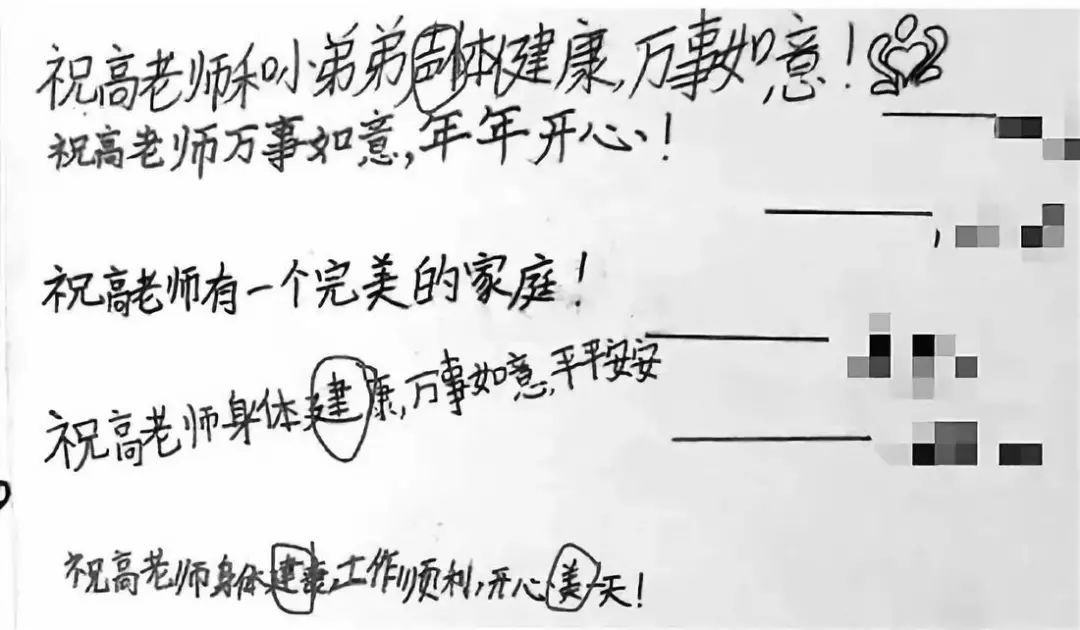 祝高老师和小弟弟声体健康,万事如意!
祝高老师万事如意,年年开心!
祝高老师有一个完美的家庭!
祝高老师身体建康,万事如意,平平安安
祝高老师身体建康,工作顺利,开心美一天!